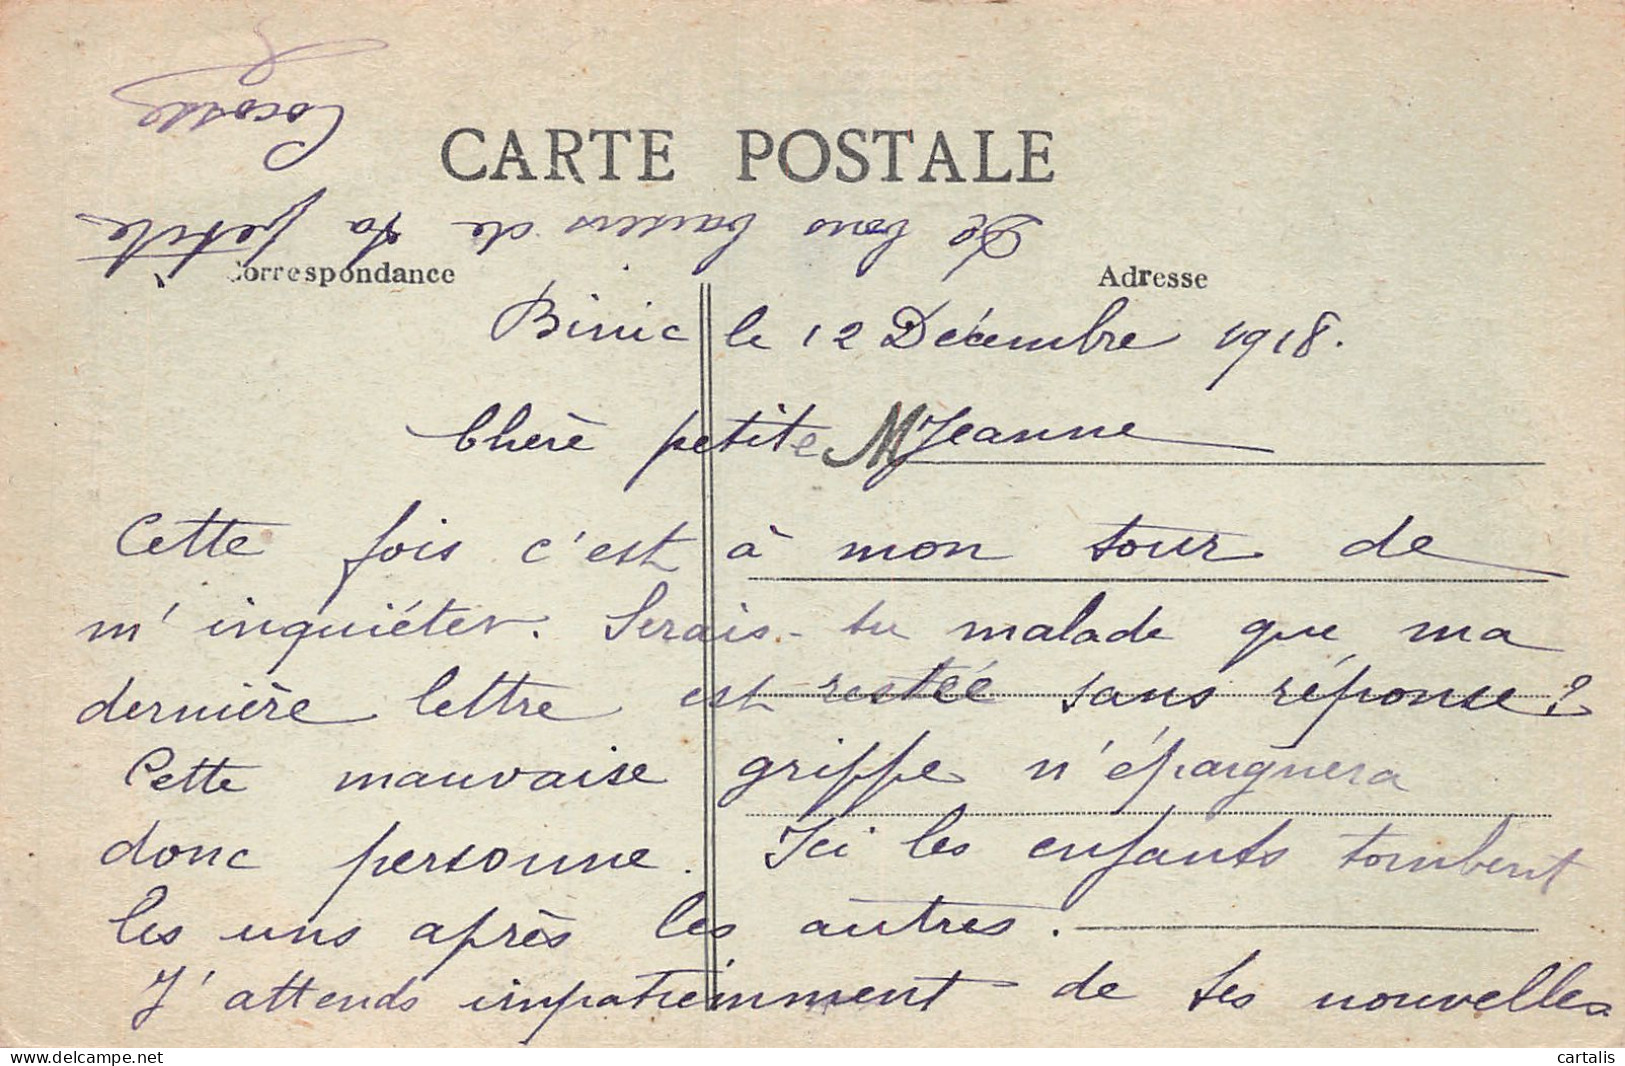 CARTE POSTALE
Correspondance
Adresse
Binic le 12 Décembre 1918.
Chère petite M Jeanne
Cette fois c'est à mon tour de
m'inquiéter. Serais-tu malade que ma
dernière lettre est restée sans réponse ?
Cette mauvaise grippe n'épargnera
donc personne. Ici les enfants tombent
les uns après les autres.
J'attends impatiemment de tes nouvelles
De bons baisers de ta petite
delcampe.net
cartalis